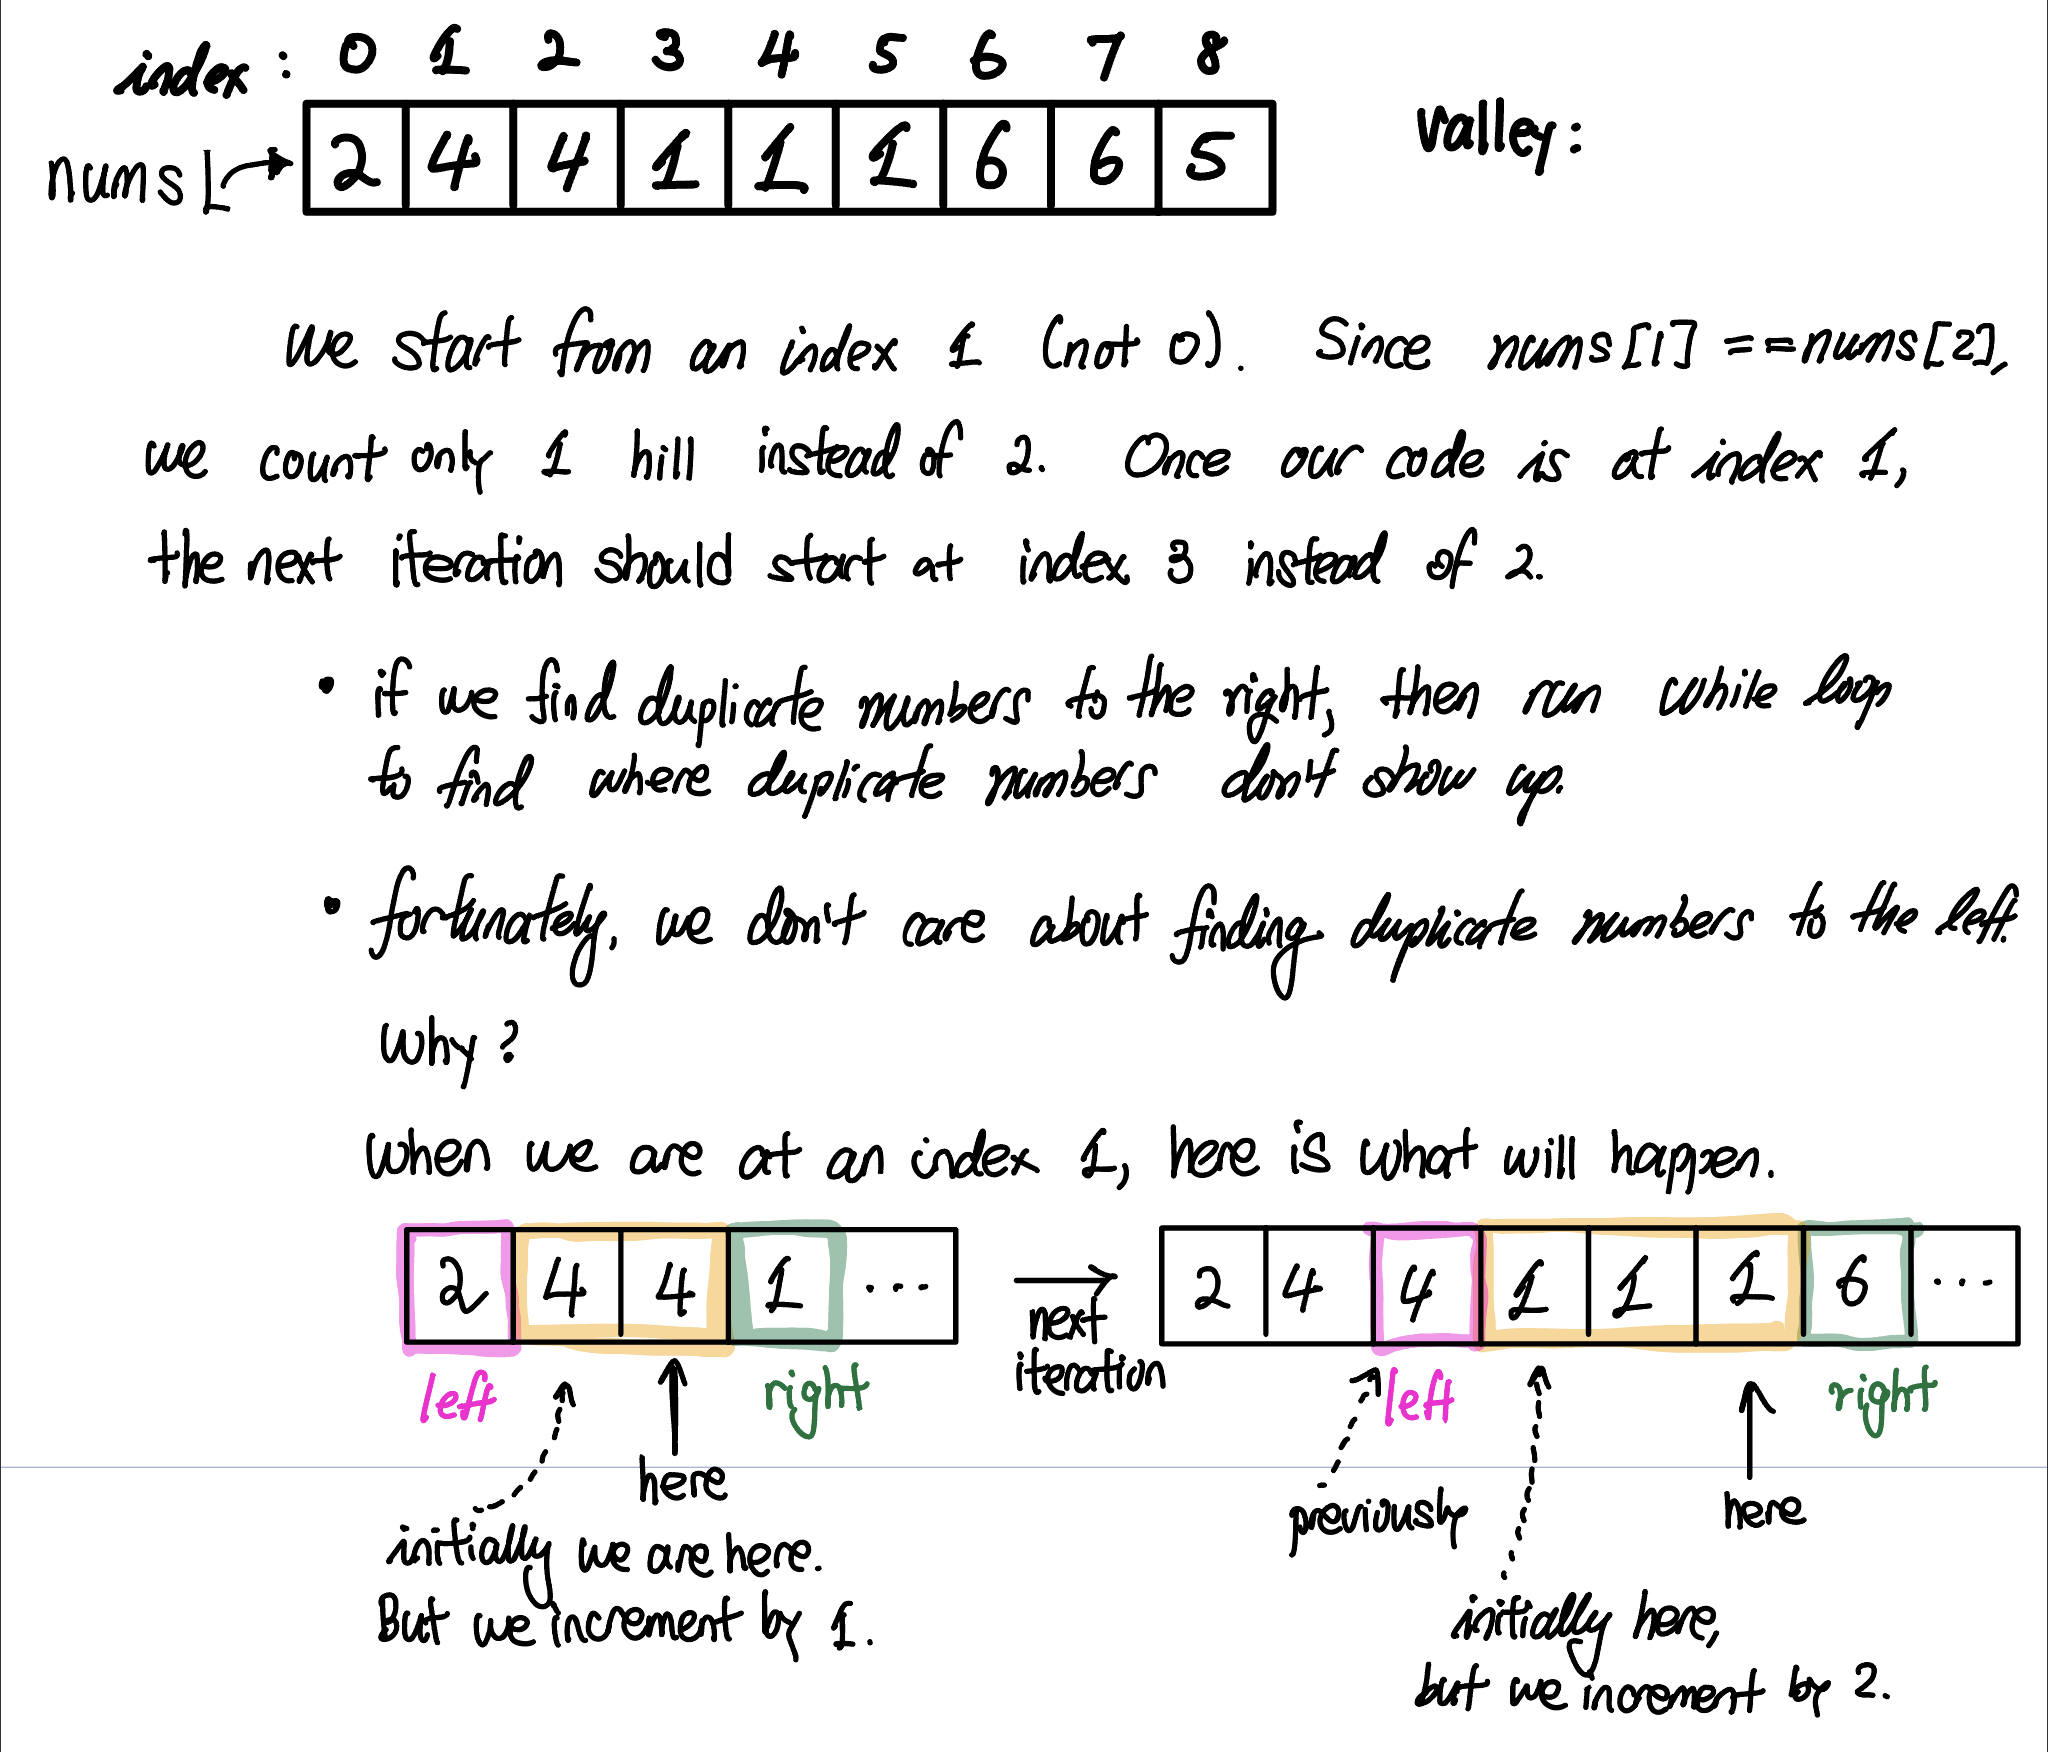 index : 0 1 2 3 4 5 6 7 8
nums 2 4 4 1 1 1 6 6 5
valley:
we start from an index 1 (not 0). Since nums[1] ==nums[2],
we count only 1 hill instead of 2. Once our code is at index 1,
the next iteration should start at index 3 instead of 2.
• if we find duplicate numbers to the right, then run while loop
to find where duplicate numbers don't show up.
• fortunately, we don't care about finding duplicate numbers to the left.
Why?
when we are at an index 1, here is what will happen.
2 4 4 1 ...
left
right
here
initially we are here.
But we increment by 1.
next
iteration
2 4 4 1 1 1 6 ...
left
right
previously
here
initially here,
but we increment by 2.